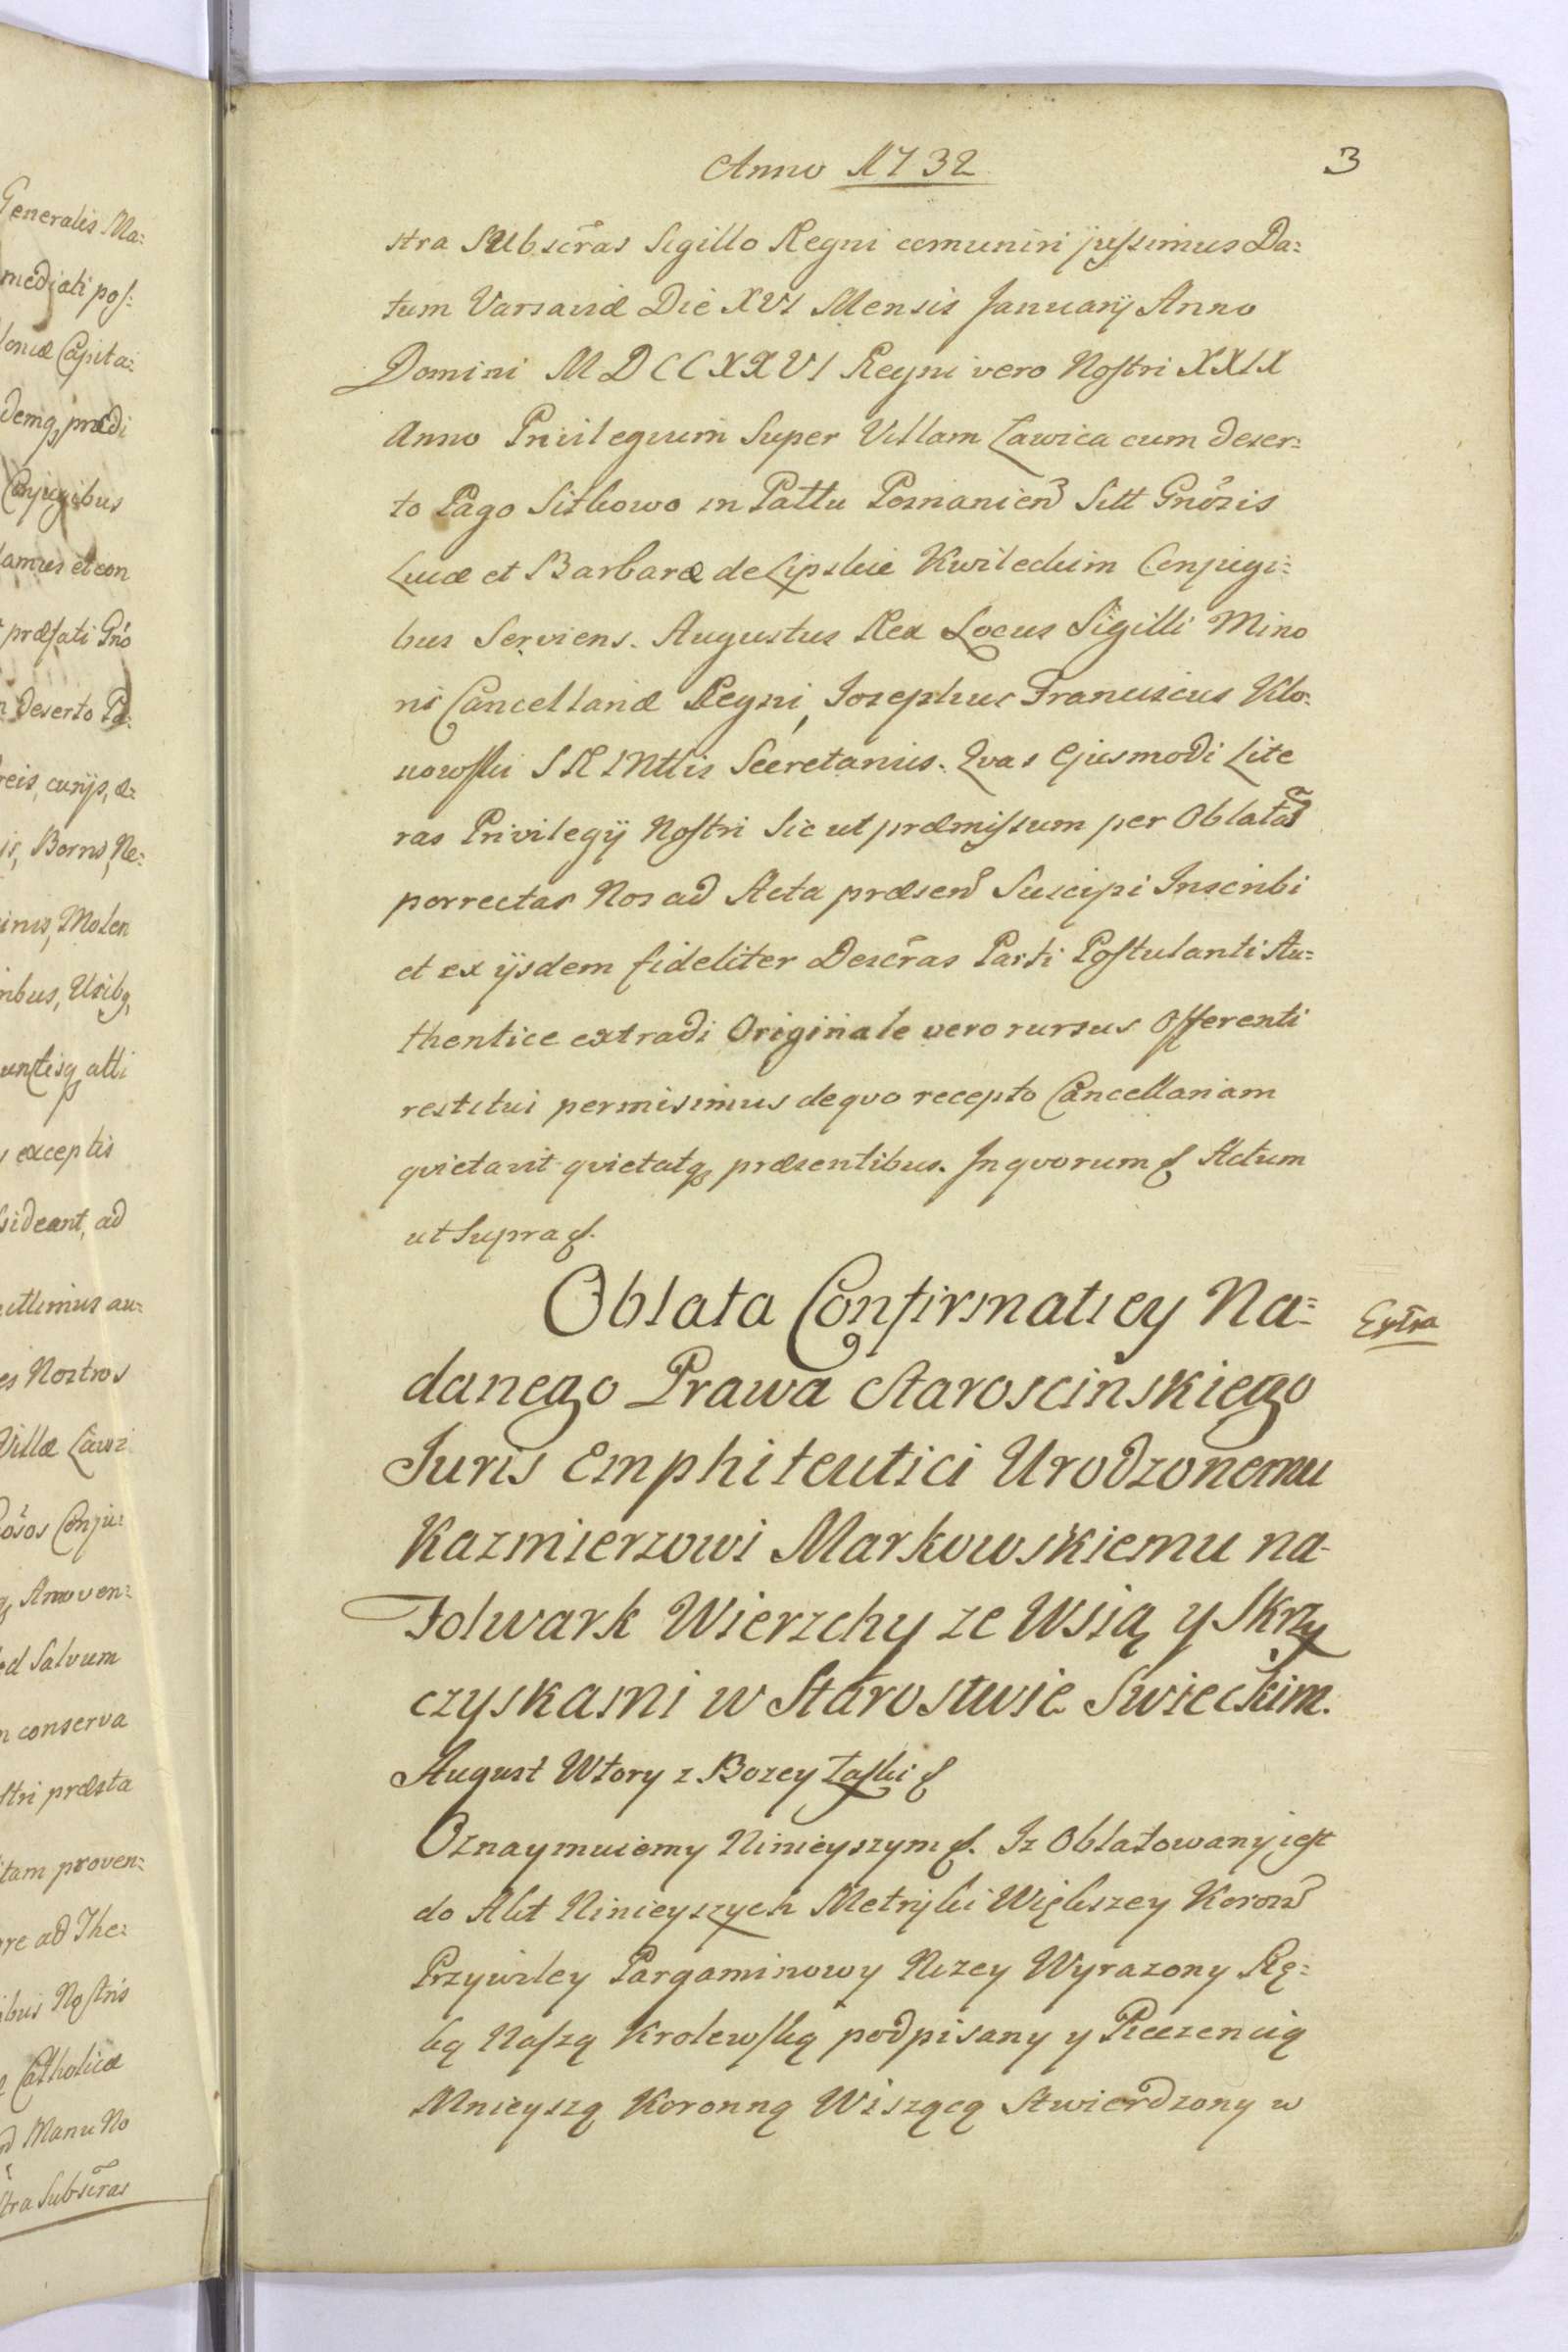 Generalis Ma:
mediati pos:
loniæ Capita:
demq, prædi
Conjugibus
lamus et con
præfati Gno
n Deserto Pa:
reis, curijs, æ:
is, Borris, Ne:
inis, Molen
nibus, Usibq,
unctisq, alli
s exceptis
sideant, ad
ittimus au:
es Nostros
Villæ Ławi
osos Conju:
q, Amoven:
ed Salvum
n conserva
stri præsta
itam proven:
re ad The:
ibus Nostris
æ Catholicæ
d Manu No
stra Subscras
Anno 1732
3
stra Subscras Sigillo Regni comuniri jussimus Da:
tum Varsaviæ Die XVI Mensis Januarij Anno
Domini MDCCXXVI Regni vero Nostri XXIX
Anno Privilegium Super Villam Ławica cum deser:
to Pago Sitkowo in Pallu Posnanien Sitt Gnosis
Lucæ et Barbaræ de Lipskie Kwileckim Conjugi:
bus Serviens. Augustus Rex Locus Sigilli Mino
ris Cancellariæ Regni, Josephus Franciscus Kło:
nowski SRMttis Secretarius. Qvas Ejusmodi Lite
ras Privilegij Nostri Sic ut præmissum per Oblatam
porrectas Nos ad Acta præsen Suscipi Inscribi
et ex ijsdem fideliter Descras Parti Postulanti Au:
thentice extradi Originale vero rursus Offerenti
restitui permisimus de qvo recepto Cancellariam
qvietavit qvietatq, præsentibus. In qvorum & Actum
ut Supra &.
Oblata Confirmatiey Na:
Extra
danego Prawa Staroscinskiego
Juris Emphiteutici Urodzonemu
Kazmierzowi Markowskiemu na
Folwark Wierzchy ze Wsią y Skrzy
czyskami w Starostwie Swieckim.
August Wtory z Bozey Łaski &
Oznaymuiemy Ninieyszym &. Iz Oblatowany iest
do Akt Ninieyszych Metryki Większey Koron
Przywiley Pargaminowy Nizey Wyrazony Rę:
ką Naszą Krolewską podpisany y Pieczencią
Mnieyszą Koronną Wiszącą Stwierdzony w